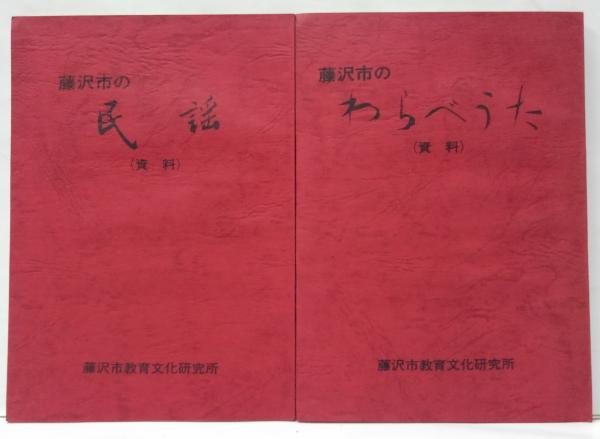 藤沢市の
民謡
(資料)
藤沢市教育文化研究所
藤沢市の
わらべうた
(資料)
藤沢市教育文化研究所